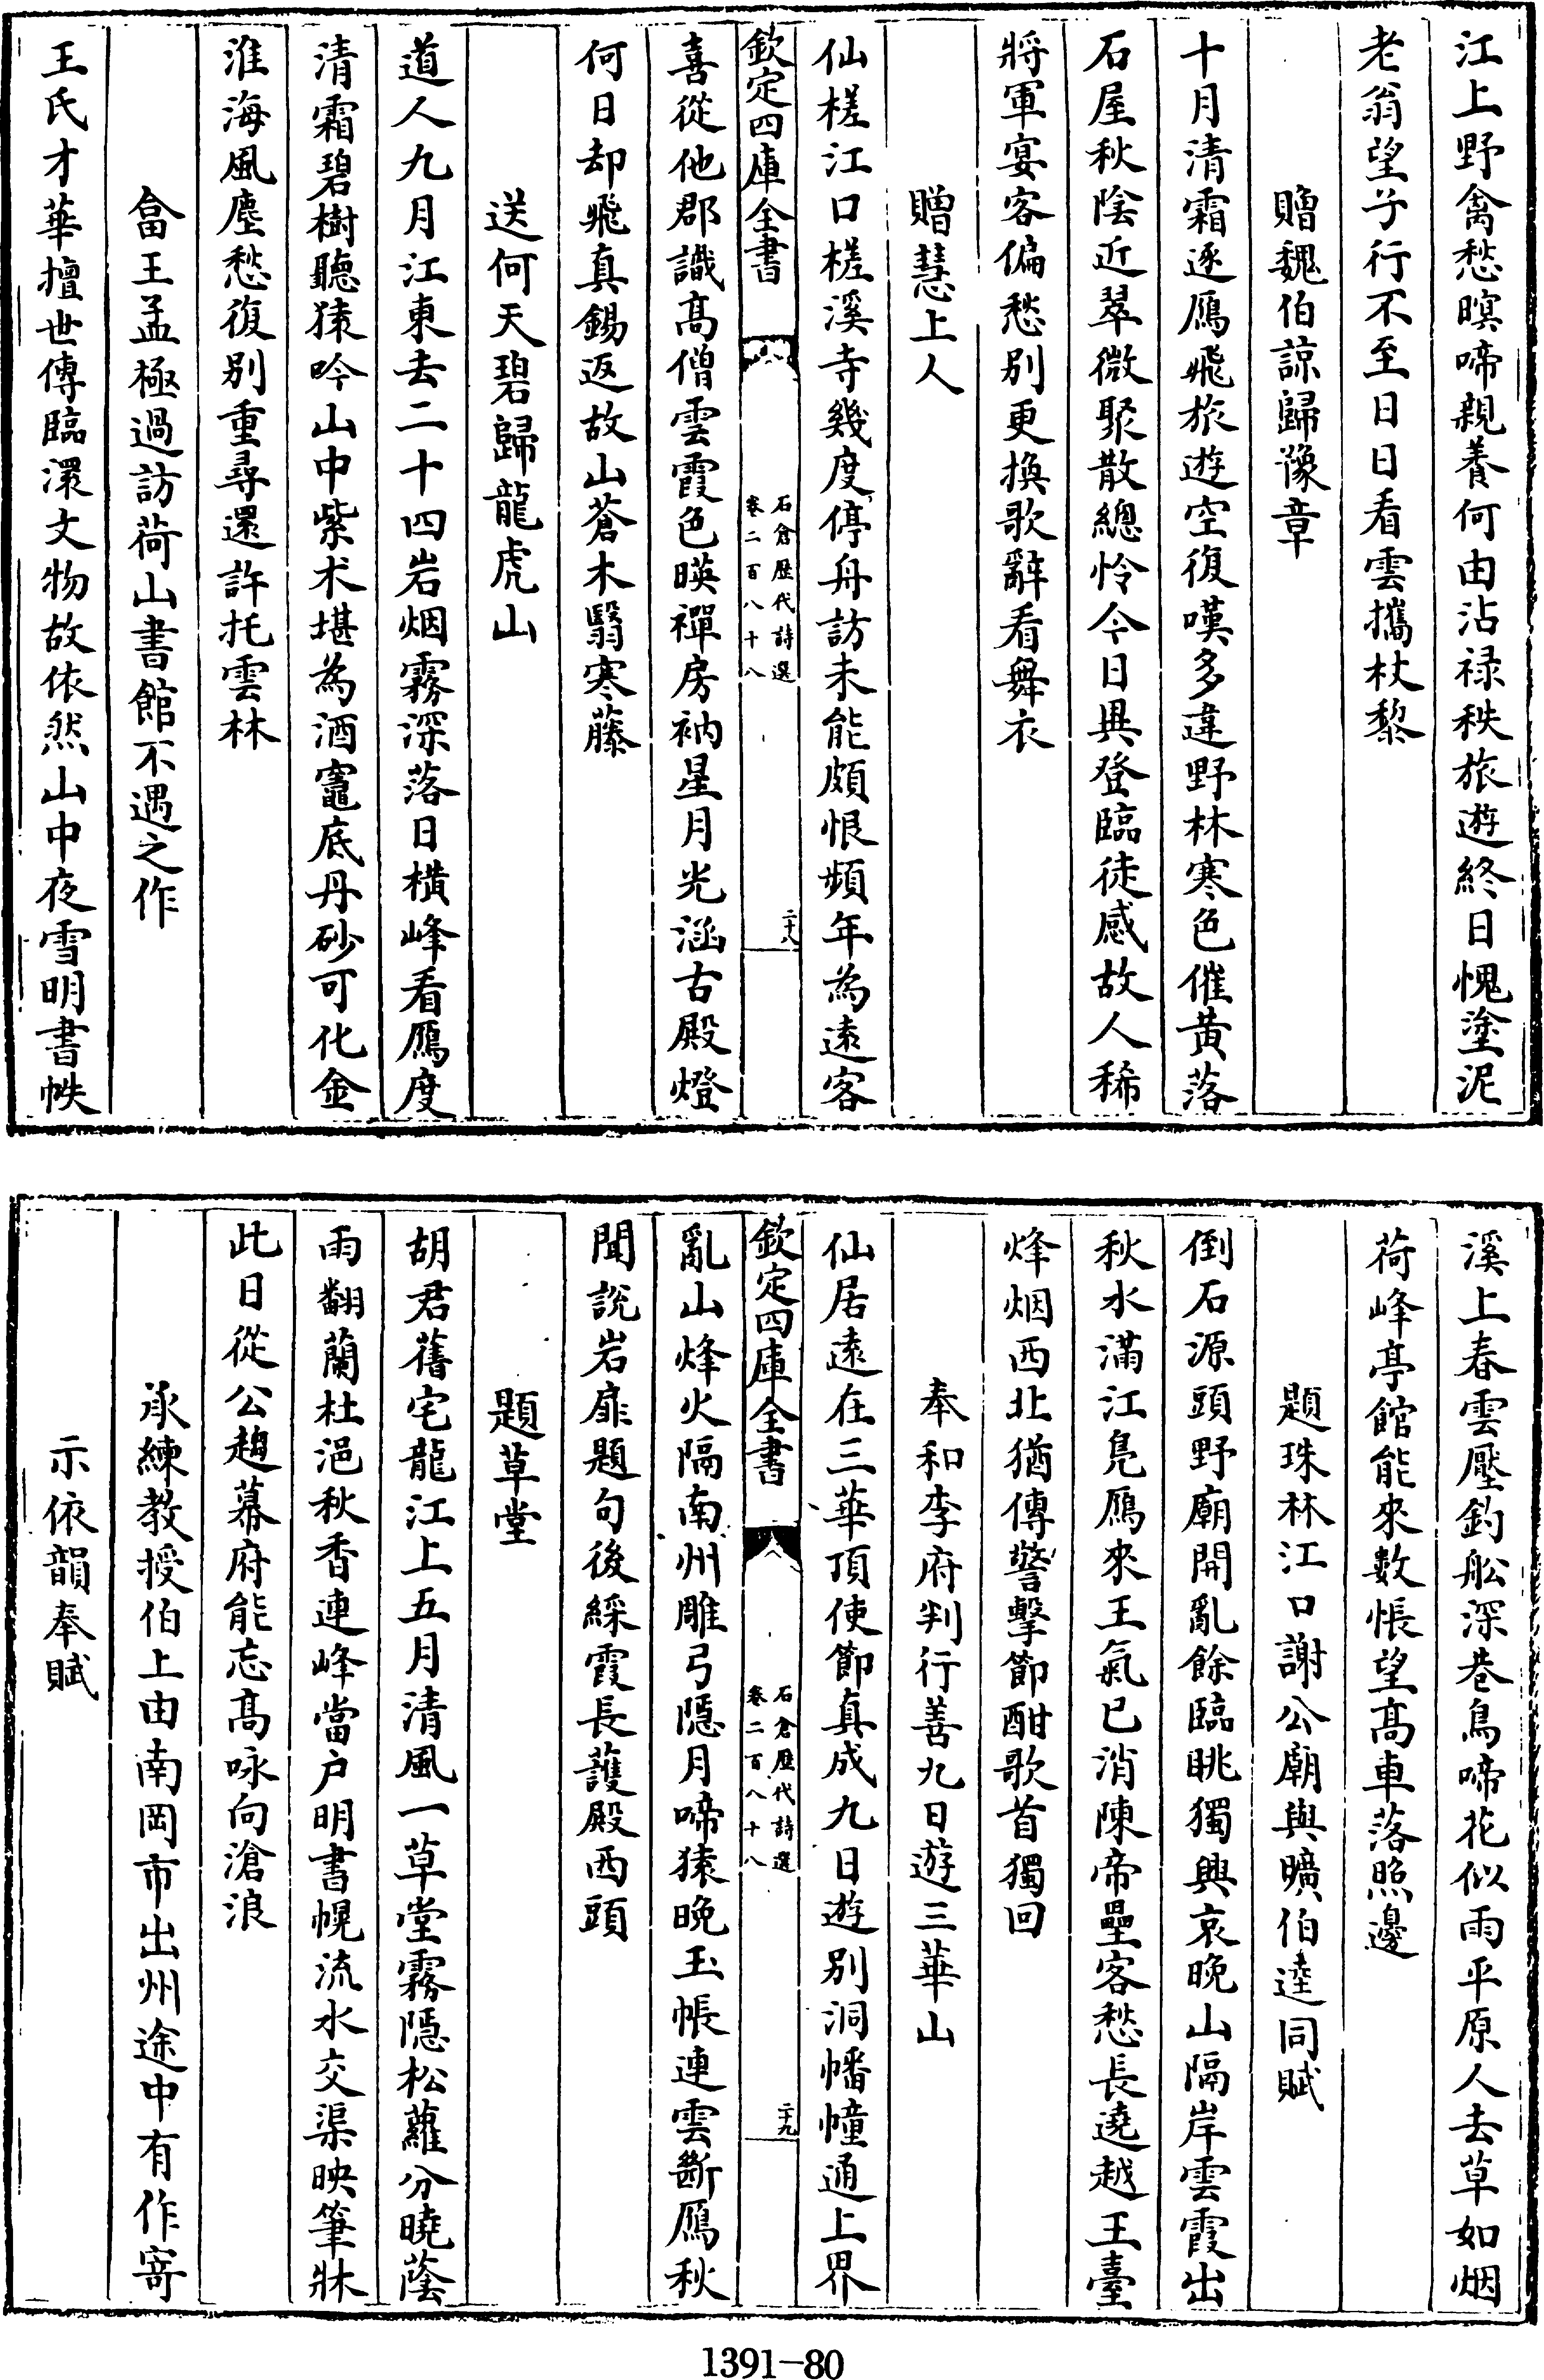 江上野禽愁暝啼親養何由沾禄秩旅遊終日愧塗泥
老翁望子行不至日日看雲攜杖藜
贈魏伯諒歸豫章
十月清霜逐鴈飛旅遊空復嘆多違野林寒色催黄落
石屋秋陰近翠微聚散總怜今日興登臨徒感故人稀
將軍宴客偏愁别更換歌辭看舞衣
贈慧上人
仙槎江口槎溪寺幾度停舟訪未能頗恨頻年為遠客
欽定四庫全書
石倉歴代詩選
卷二百八十八
二十八
喜從他郡識髙僧雲霞色暎禪房衲星月光涵古殿燈
何日却飛真錫返故山蒼木翳寒藤
送何天碧歸龍虎山
道人九月江東去二十四岩烟霧深落日橫峰看鴈度
清霜碧樹聽猿吟山中紫术堪為酒竈底丹砂可化金
淮海風塵愁復别重尋還許托雲林
畣王孟極過訪荷山書館不遇之作
王氏才華擅世傳臨澴文物故依然山中夜雪明書帙
溪上春雲壓釣舩深巷鳥啼花似雨平原人去草如烟
荷峰亭館能來數悵望髙車落照邊
題珠林江口謝公廟與曠伯逵同賦
倒石源頭野廟開亂餘臨眺獨興哀晚山隔岸雲霞出
秋水滿江鳬鴈來王氣已消陳帝壘客愁長遶越王臺
烽烟西北猶傳警擊節酣歌首獨回
奉和李府判行善九日遊三華山
仙居遠在三華頂使節真成九日遊别洞幡幢通上界
欽定四庫全書
石倉歴代詩選
卷二百八十八
二十九
亂山烽火隔南州雕弓隠月啼猿晚玉帳連雲斷鴈秋
聞説岩扉題句後綵霞長護殿西頭
題草堂
胡君舊宅龍江上五月清風一草堂霧隠松蘿分曉蔭
雨翻蘭杜浥秋香連峰當户明書幌流水交渠映筆牀
此日從公趨幕府能忘髙咏向滄浪
承練教授伯上由南岡市出州途中有作寄
示依韻奉賦
1391-80